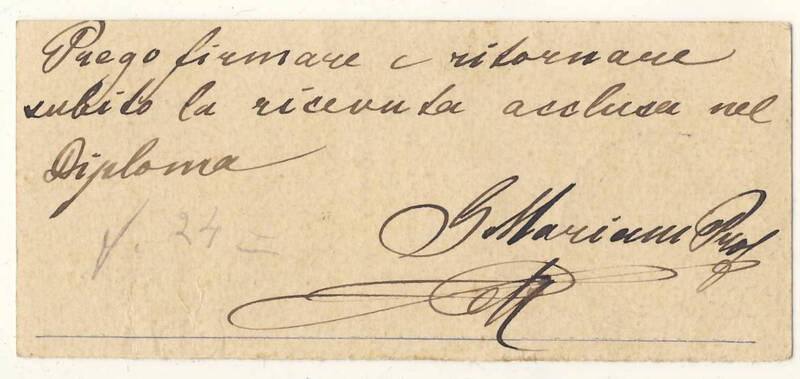 Prego firmare e ritornare
subito la ricevuta acclusa nel
Diploma
G Mariani Prof
f. 24 =